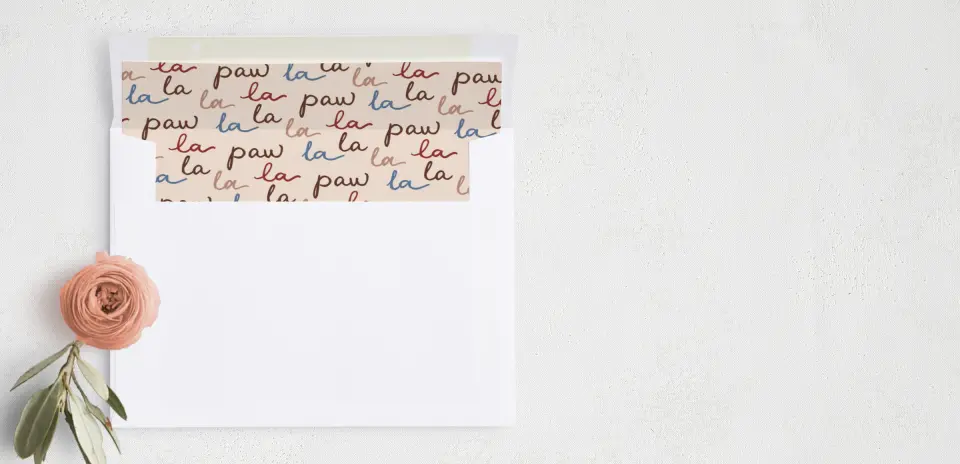 la la paw la la la la paw
la la la la paw la la la la
paw la la la la paw la la
la paw la la la la
la la la la paw la la la
paw la la la